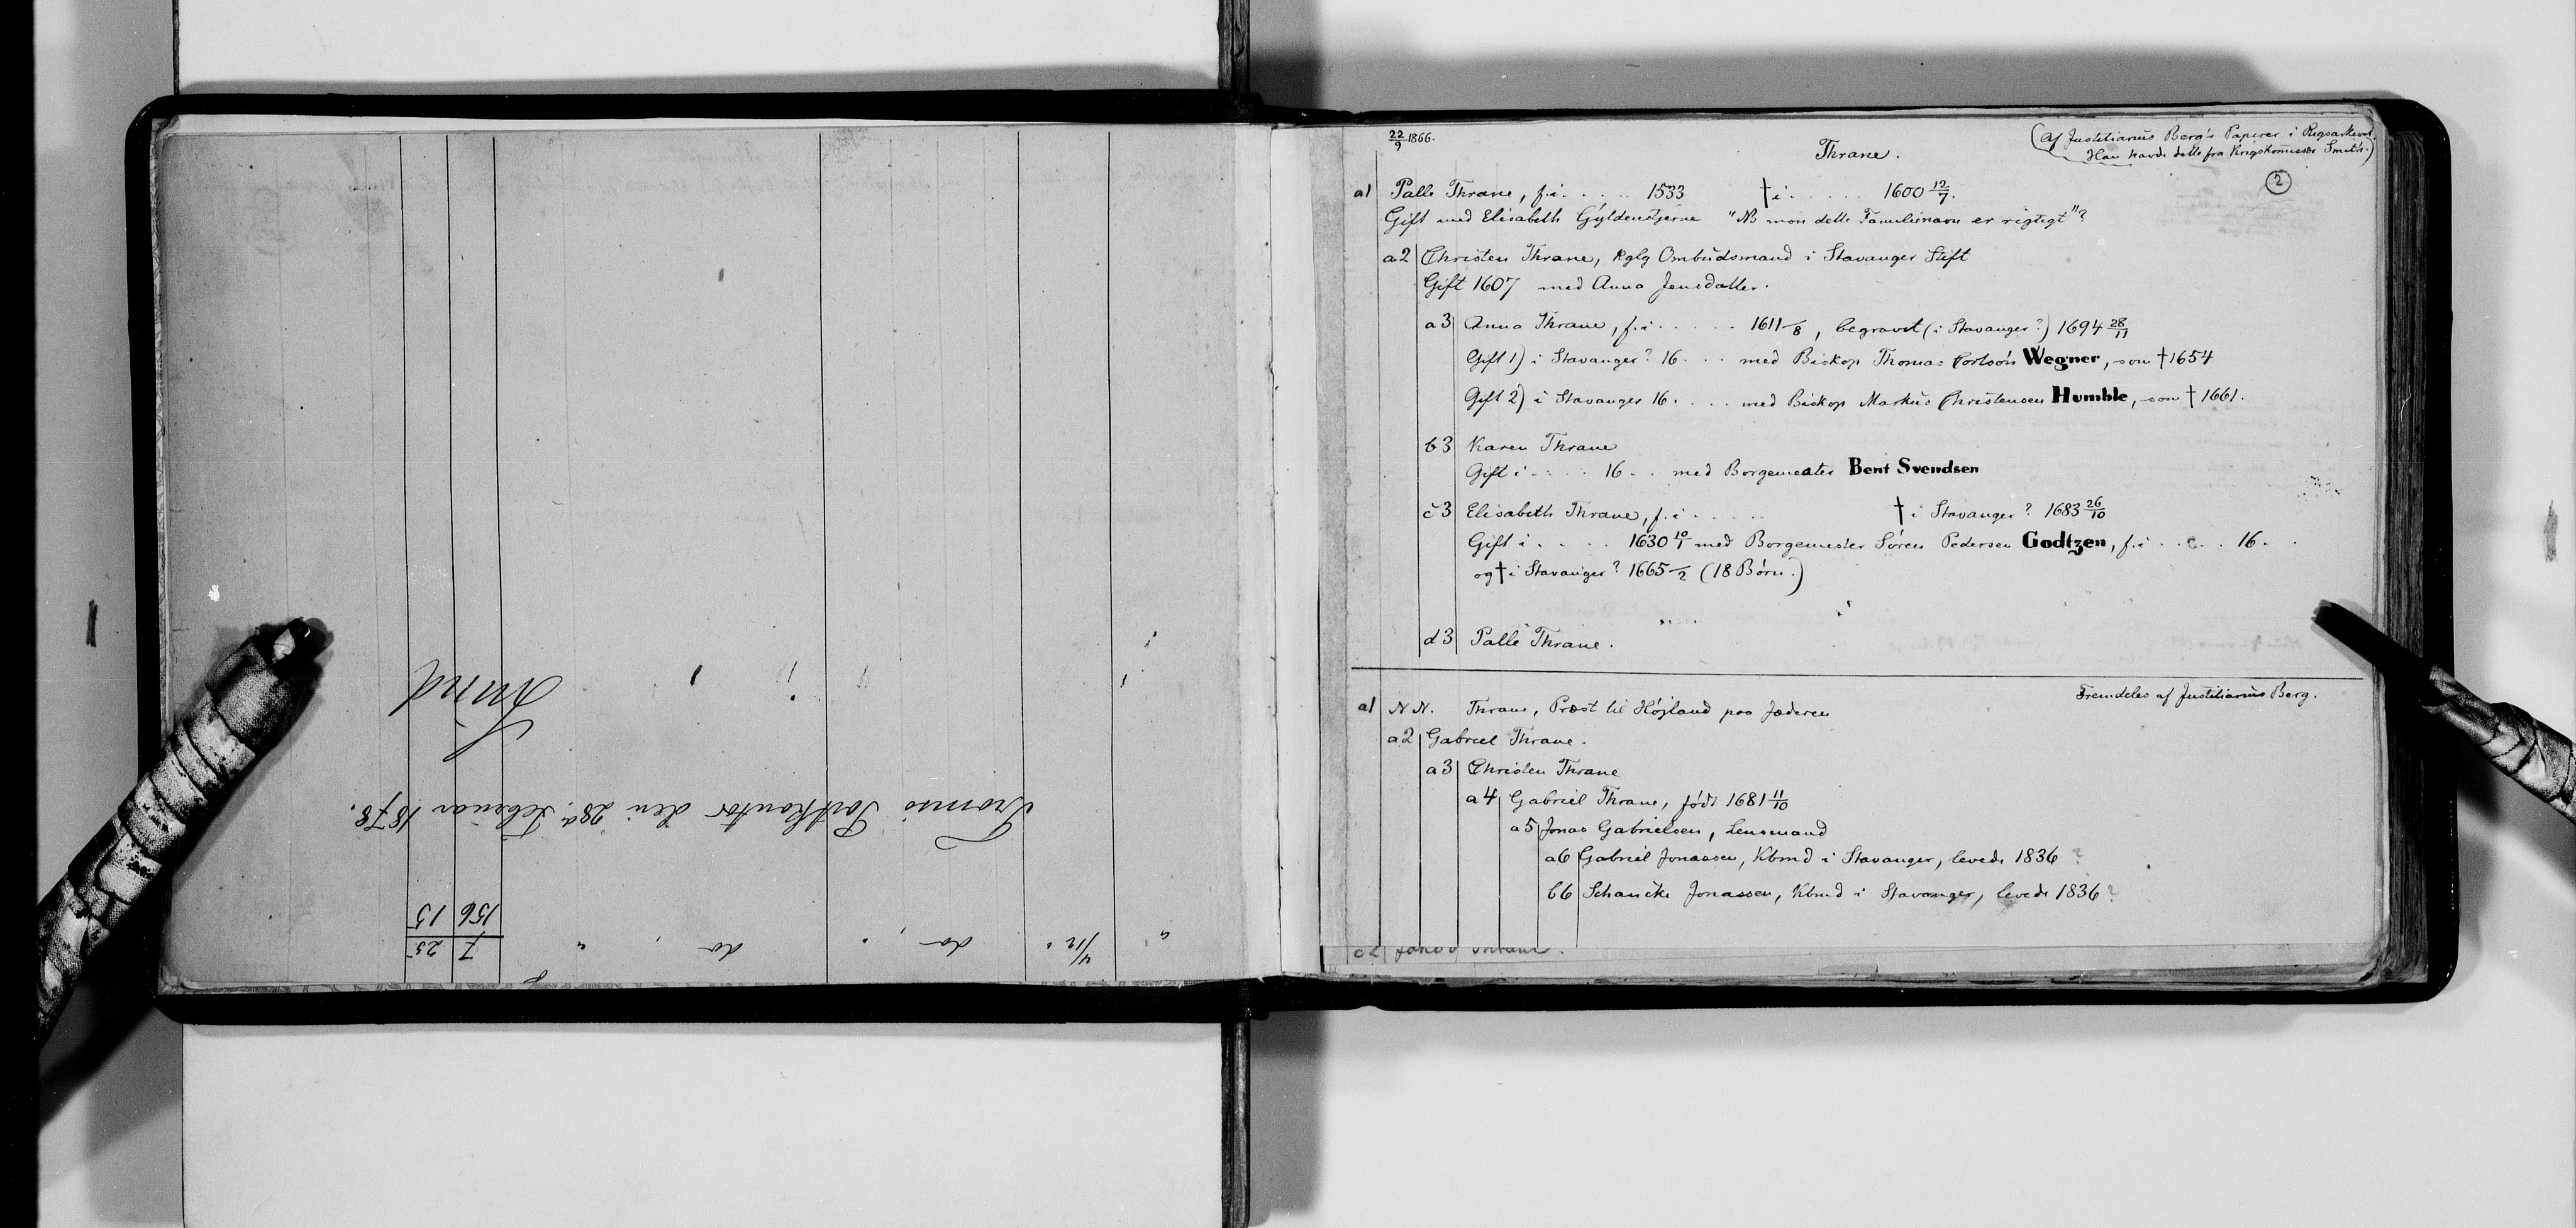 " 4/12 " do " do " 7 25
156 15
Tromsø Postkontor den 28d Februar 1878.
Lund
22/9 1866.
Thrane.
(Af Justitiarius Berg's Papirer i Rigsarkivet.
Han havde dette fra Krigskommissær Smith.)
2
a1 Palle Thrane, f. i . . . . . 1533 † i . . . . . 1600 12/7.
Gift med Elisabeth Gyldenstjerne "NB mon dette Familienavn er rigtigt"?
a2 Christen Thrane, kglg Ombudsmand i Stavanger Stift
Gift 1607 med Anna Jensdatter.
a3 Anna Thrane, f. i . . . . . 1611 /8, begravet (i Stavanger?) 1694 28/11
Gift 1) i Stavanger? 16 . . . med Biskop Thomas Cortsøn Wegner, som † 1654
Gift 2) i Stavanger 16 . . . . med Biskop Markus Christensen Humble, som † 1661.
b3 Karen Thrane
Gift i . . . . 16 . . med Borgemester Bent Svendsen
c3 Elisabeth Thrane, f. i . . . . . † i Stavanger? 1683 26/10
Gift i . . . . 1630 10/1 med Borgemester Søren Pedersen Godtzen, f. i . . . . 16 . .
og † i Stavanger? 1665 /2 (18 Børn.)
d3 Palle Thrane.
Fremdeles af Justitiarius Berg.
a1 N N. Thrane, Præst til Højland paa Jæderen
a2 Gabriel Thrane.
a3 Christen Thrane
a4 Gabriel Thrane, født 1681 11/10
a5 Jonas Gabrielsen, Lensmand
a6 Gabriel Jonassen, Kbmd i Stavanger, levede 1836 ?
b6 Schancke Jonassen, Kbmd i Stavanger, levede 1836 ?
c2 Jakob Thrane.